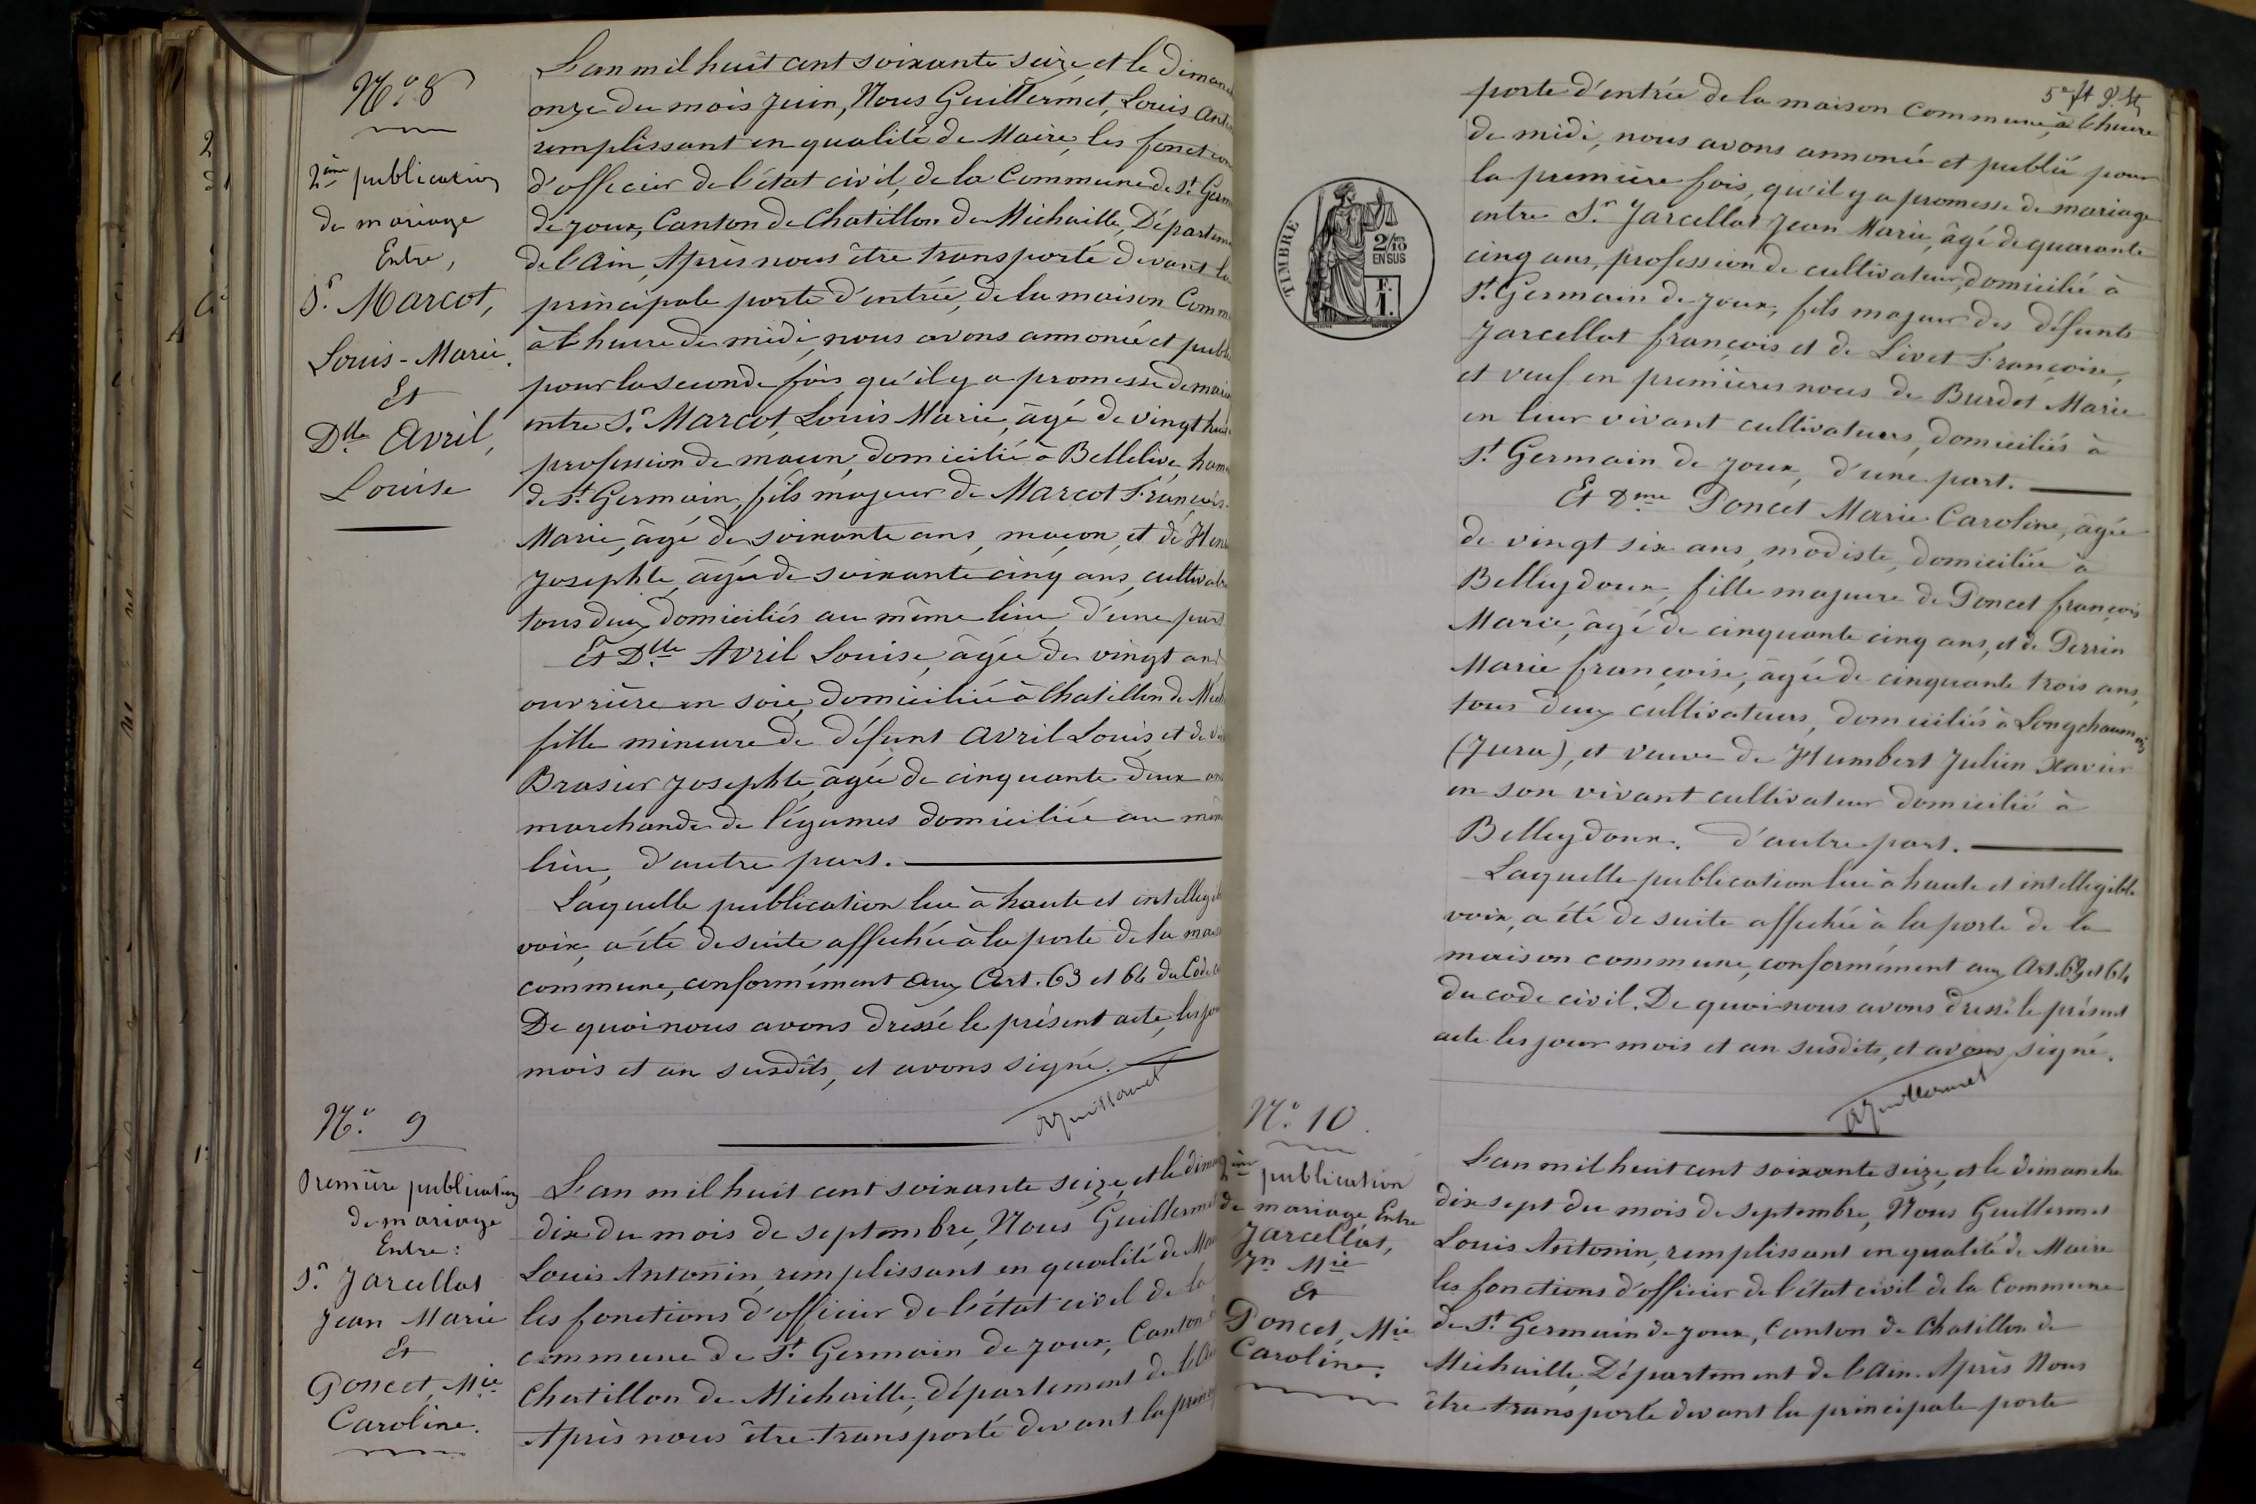 N.o 8
2ème publication
de mariage
Entre,
Sr. Marcot,
Louis-Marie.
Et
Dlle Avril,
Louise
L'an mil huit cent soixante seize et le diman
onze du mois Juin, Nous Guillermet, Louis Anton
remplissant en qualité de Maire, les fonction
d'officier de l'état civil, de la Commune de St Germ
de Joux, Canton de Chatillon de Michaille, Départeme
de l'Ain, Après nous être transporté devant la
principale porte d'entrée, de la maison Comm
à l'heure de midi, nous avons annoncé et publi
pour la seconde fois qu'il y a promesse de maria
entre Sr. Marcot, Louis Marie, âgé de vingt huit
profession de maçon, domicilié à Bellelive, ham
de St. Germain, fils majeur de Marcot François
Marie, âgé de soixante ans, maçon, et de Hen
Josephte, âgée de soixante cinq ans, cultivat
tous deux domiciliés au même lieu, d'une part
Et Dlle Avril Louise, âgée de vingt ans
ouvrière en soie, domiciliée à Chatillon de Mich
fille mineure de défunt Avril Louis, et de
Brasier Josephte, âgée de cinquante deux ans
marchande de légumes domiciliée au mêm
lieu, d'autre part.
Laquelle publication lue à haute et intelligib
voix, a été de suite affichée à la porte de la mais
commune, conformément aux Art. 63 et 64 du Code
De quoi nous avons dressé le présent acte, les jou
mois et an susdits, et avons signé.
AGuillermet
N.o 9
Première publication
de mariage
Entre:
Sr. Jarcellat
Jean Marie
Et
Poncet, Mie
Caroline.
L'an mil huit cent soixante seize, et le diman
dix du mois de septembre, Nous Guillermet
Louis Antonin, remplissant en qualité de Mai
les fonctions d'officier de l'état civil de la
commune de St. Germain de Joux, Canton
Chatillon de Michaille, département de l'Ai
Après nous être transporté devant la princi
5e ft
porte d'entrée de la maison Commune, à l'heure
de midi, nous avons annoncé et publié pour
la première fois, qu'il y a promesse de mariage
entre Sr. Jarcellat Jean Marie, âgé de quarante
cinq ans, profession de cultivateur, domicilié à
St. Germain de Joux, fils majeur des défunts
Jarcellat françois et de Livet Françoise,
et veuf en premières noces de Burdet Marie
en leur vivant cultivateurs, domiciliés à
St. Germain de Joux, d'une part.
Et Dme Poncet Marie Caroline, âgée
de vingt six ans, modiste, domiciliée à
Belleydoux, fille majeure de Poncet françois
Marie, âgé de cinquante cinq ans, et de Perrin
Marie françoise, âgée de cinquante trois ans,
tous deux cultivateurs, domiciliés à Longchaumois
(Jura), et veuve de Humbert Julien Xavier
en son vivant cultivateur domicilié à
Belleydoux. d'autre part.
Laquelle publication lue à haute et intelligible
voix, a été de suite affichée à la porte de la
maison commune, conformément aux Art. 63 et 64
du code civil. De quoi nous avons dressé le présent
acte les jour mois et an susdits, et avons signé.
AGuillermet
TIMBRE
2/10
EN SUS
F.
1.
N.o 10
2ème publication
de mariage Entre
Jarcellat,
Jn Mie
Et
Poncet, Mie
Caroline.
L'an mil huit cent soixante seize, et le dimanche
dix sept du mois de septembre, Nous Guillermet
Louis Antonin, remplissant en qualité de Maire
les fonctions d'officier de l'état civil de la Commune
de St. Germain de Joux, Canton de Chatillon de
Michaille, Département de l'Ain. Après Nous
être transporté devant la principale porte